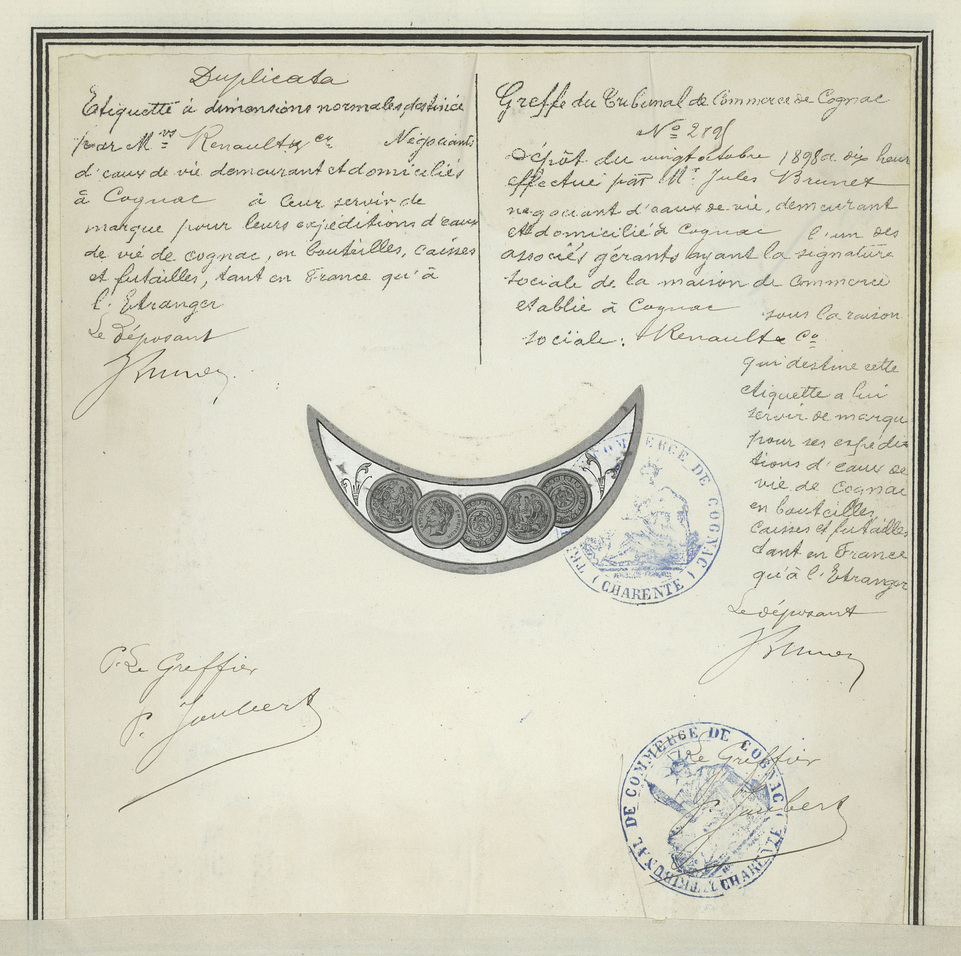 Duplicata
Etiquette à dimensions normales destinée
par M.rs Renault & Co Négociants
d'eaux de vie demeurant et domiciliés
à Cognac à leur servir de
marque pour leurs expéditions d'eaux
de vie de cognac, en bouteilles, caisses
et futailles, tant en France qu'à
l'Etranger
Le déposant
JBrunet
Greffe du Tribunal de Commerce de Cognac
No
Dépôt du vingt octobre 1898 a dix heures
effectué par Mr. Jules Brunet
négociant d'eaux de vie, demeurant
et domicilié à Cognac l'un des
associés gérants ayant la signature
sociale de la maison de Commerce
etablie à Cognac sous la raison
sociale: Renault & Co
qui destine cette
etiquette a lui
servir de marque
pour ses expédi-
tions d'eaux de
vie de Cognac
en bouteilles
caisses et futailles
tant en France
qu'à l'Etranger
Le déposant
JBrunet
COMMERCE DE COGNAC
(CHARENTE)
P. Le Greffier
P. Joubert
Le Greffier
P. Joubert
TRIBUNAL DE COMMERCE DE COGNAC
(CHARENTE)